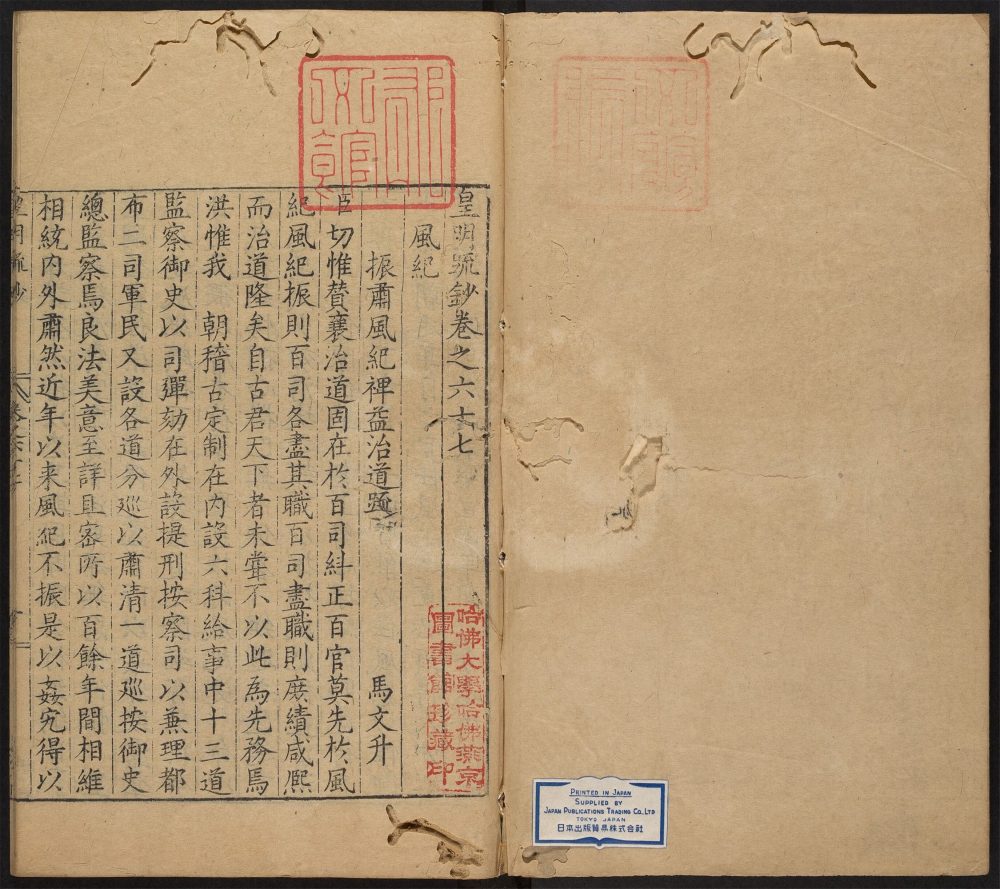 皇明疏鈔卷之六十七
風紀
振肅風紀裨益治道題
馬文升
臣切惟賛襄治道固在於百司紏正百官莫先於風
紀風紀振則百司各盡其職百司盡職則庶績咸熈
而治道隆矣自古君天下者未甞不以此為先務焉
洪惟我 朝稽古定制在內設六科給事中十三道
監察御史以司彈劾在外設提刑按察司以兼理都
布二司軍民又設各道分廵以肅清一道廵按御史
總監察焉良法美意至詳且宻所以百餘年間相維
相統內外肅然近年以来風紀不振是以姦宄得以
皇明疏鈔
哈佛大學哈佛燕京
圖書館珍藏印
PRINTED IN JAPAN
SUPPLIED BY
JAPAN PUBLICATIONS TRADING CO., LTD
TOKYO JAPAN
日本出版貿易株式会社